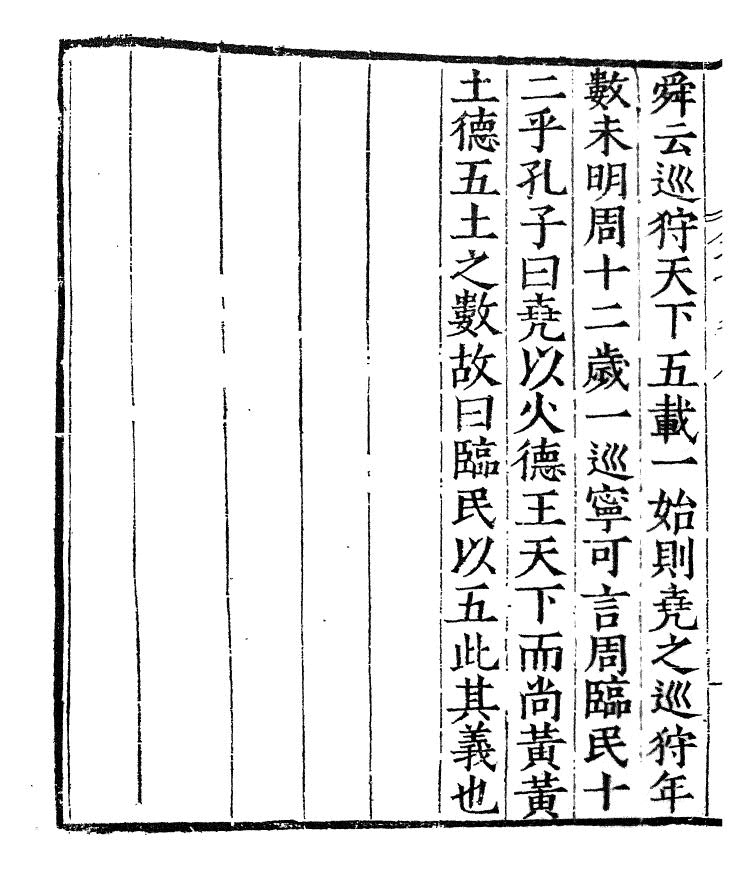 舜云巡狩天下五載一始則堯之巡狩年
數未明周十二歲一巡寧可言周臨民十
二乎孔子曰堯以火德王天下而尚黃黃
土德五土之數故曰臨民以五此其義也